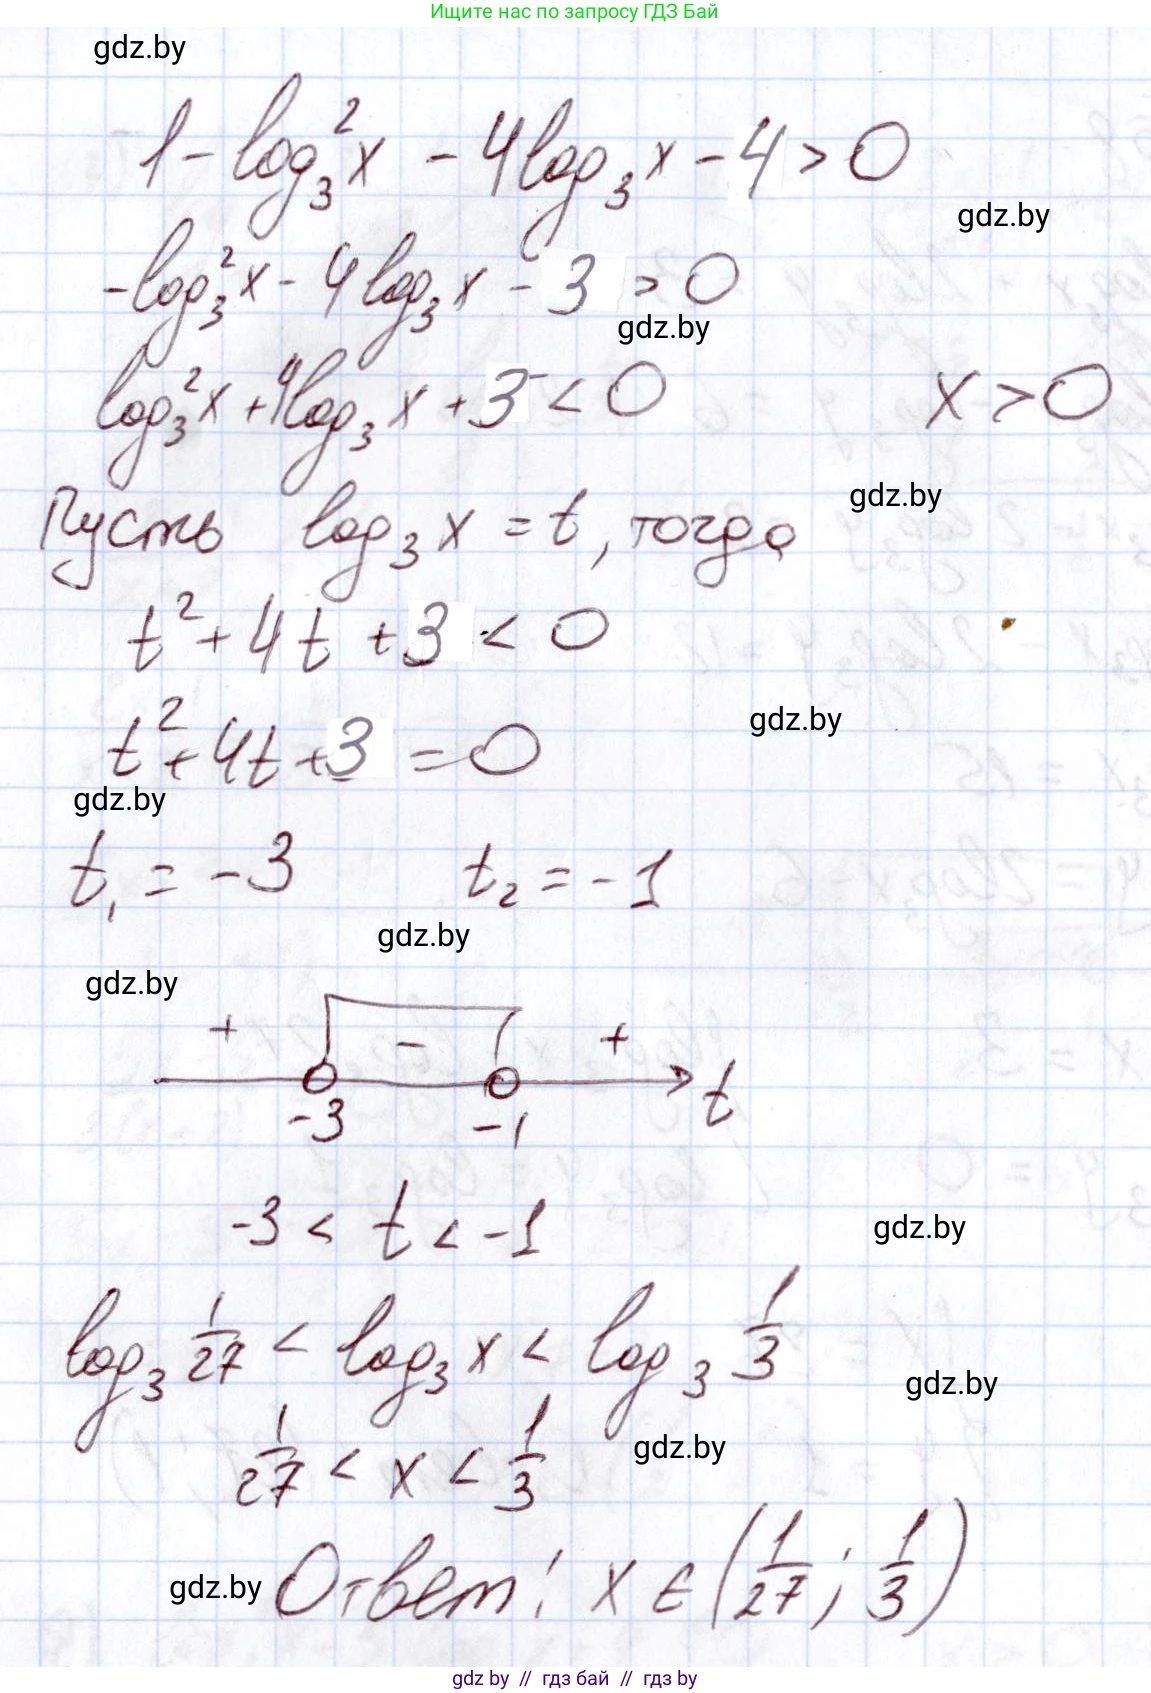 Ищите нас по запросу ГДЗ Бай
gdz.by
1 - log₃²x - 4log₃x - 4 > 0
gdz.by
-log₃²x - 4log₃x - 3 > 0
gdz.by
log₃²x + 4log₃x + 3 < 0 x > 0
gdz.by
Пусть log₃x = t, тогда
t² + 4t + 3 < 0
gdz.by
t² + 4t + 3 = 0
gdz.by
t₁ = -3 t₂ = -1
gdz.by
gdz.by
+ - +
-3 -1 t
-3 < t < -1
gdz.by
log₃ 1/27 < log₃x < log₃ 1/3
gdz.by
1/27 < x < 1/3
gdz.by
gdz.by
Ответ: x ∈ (1/27; 1/3)
gdz by // гдз бай // гдз by